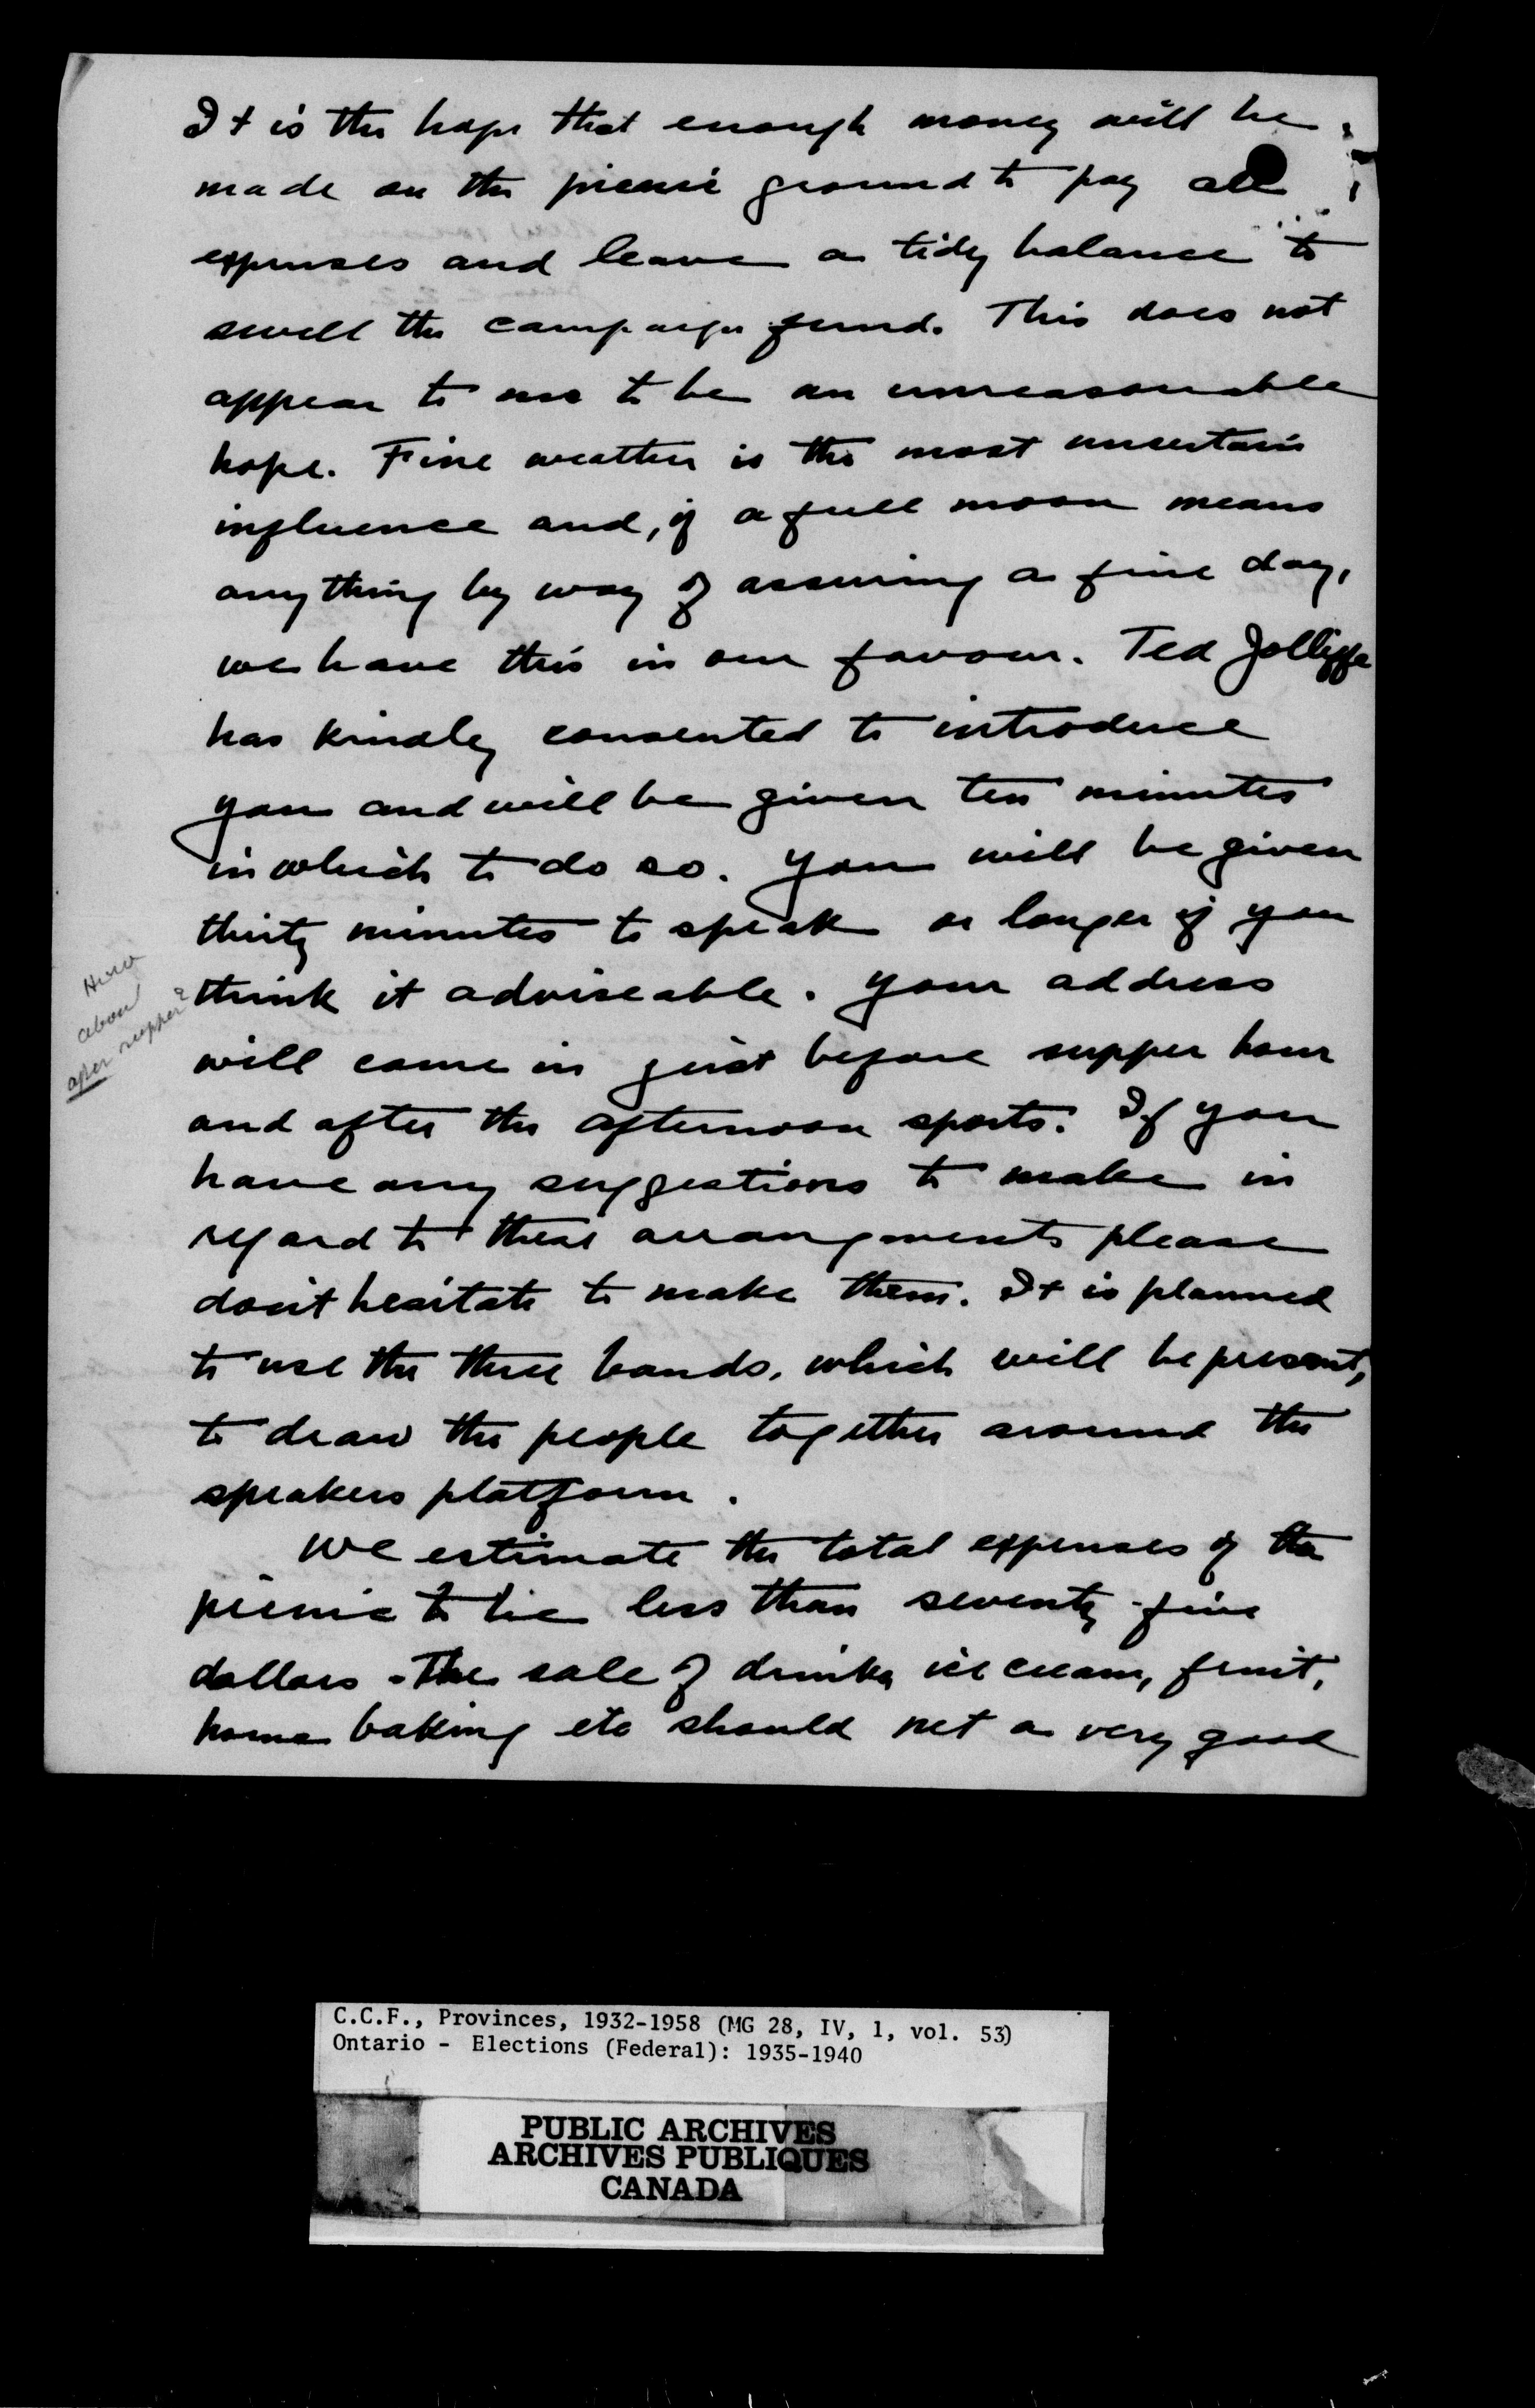 It is the hope that enough money will be
made on the picnic ground to pay all
expenses and leave a tidy balance to
swell the campaign fund. This does not
appear to me to be an unreasonable
hope. Fine weather is the most uncertain
influence and, if a full moon means
anything by way of assuring a fine day,
we have this in our favour. Ted Jolliffe
has kindly consented to introduce
you and will be given ten minutes
in which to do so. You will be given
thirty minutes to speak or longer if you
think it adviseable. Your address
will come in just before supper hour
and after the afternoon sports. If you
have any suggestions to make in
regard to these arrangments please
don't hesitate to make them. It is planned
to use the three bands, which will be present,
to draw the people together around the
speakers platform.
We estimate the total expenses of the
picnic to be less than seventy-five
dollars. The sale of drinks, ice cream, fruit,
home baking etc should net a very good
How
about
after supper?
C.C.F., Provinces, 1932-1958 (MG 28, IV, 1, vol. 53)
Ontario - Elections (Federal): 1935-1940
PUBLIC ARCHIVES
ARCHIVES PUBLIQUES
CANADA